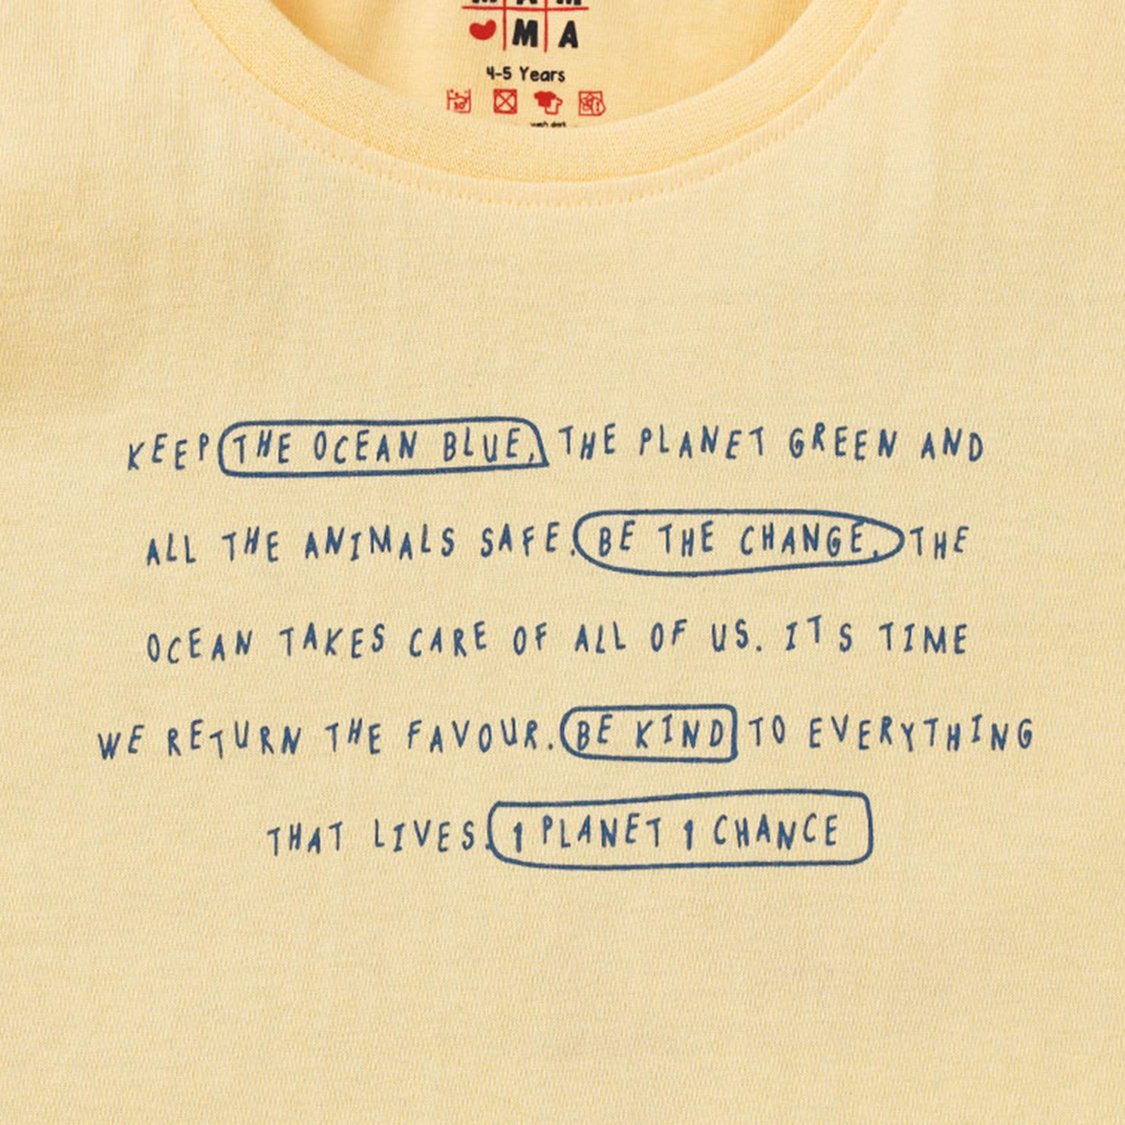 M A
4-5 Years
KEEP THE OCEAN BLUE, THE PLANET GREEN AND
ALL THE ANIMALS SAFE. BE THE CHANGE. THE
OCEAN TAKES CARE OF ALL OF US. ITS TIME
WE RETURN THE FAVOUR. BE KIND TO EVERYTHING
THAT LIVES. 1 PLANET 1 CHANCE